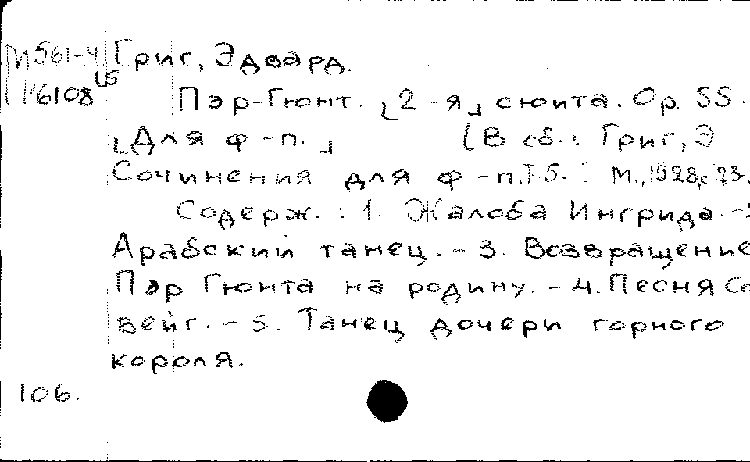 М561-4 Григ, Эдвард.
1/6108 Пэр-Гюнт. [2-я] сюита. Op. 55.
[Для ф-п.] (В сб.: Григ, Э
Сочинения для ф-п. Т.5. М., 1928, с 23.
Содерж.: 1. Жалоба Ингрида. -
Арабский танец. - 3. Возвращение
Пэр Гюнта на родину. - 4. Песня Со
вейг. - 5. Танец дочери горного
короля.
106.